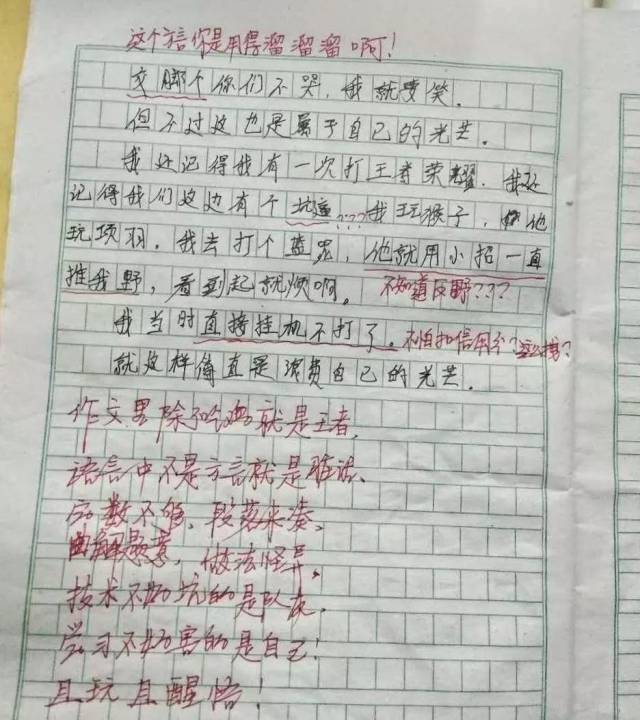 这个方言你是用得溜溜溜啊!
交脚个你们不哭,我就要笑。
但不过这也是属于自己的光芒。
我还记得我有一次打王者荣耀,我还
记得我们这边有个坑逼,???我玩猴子,他
玩项羽,我去打个蓝爸,他就用小招一直
推我野,看到起就烦啊。 不知道反野???
我当时直接挂机不打了。不怕扣信用分?
就这样简直是浪费自己的光芒。
作文里除了吃鸡就是王者,
语言中不是方言就是难话、
字数不够,段落来凑、
曲解题意,做法怪异,
技术不好坑的是队友,
学习不好害的是自己!
且玩且醒悟!